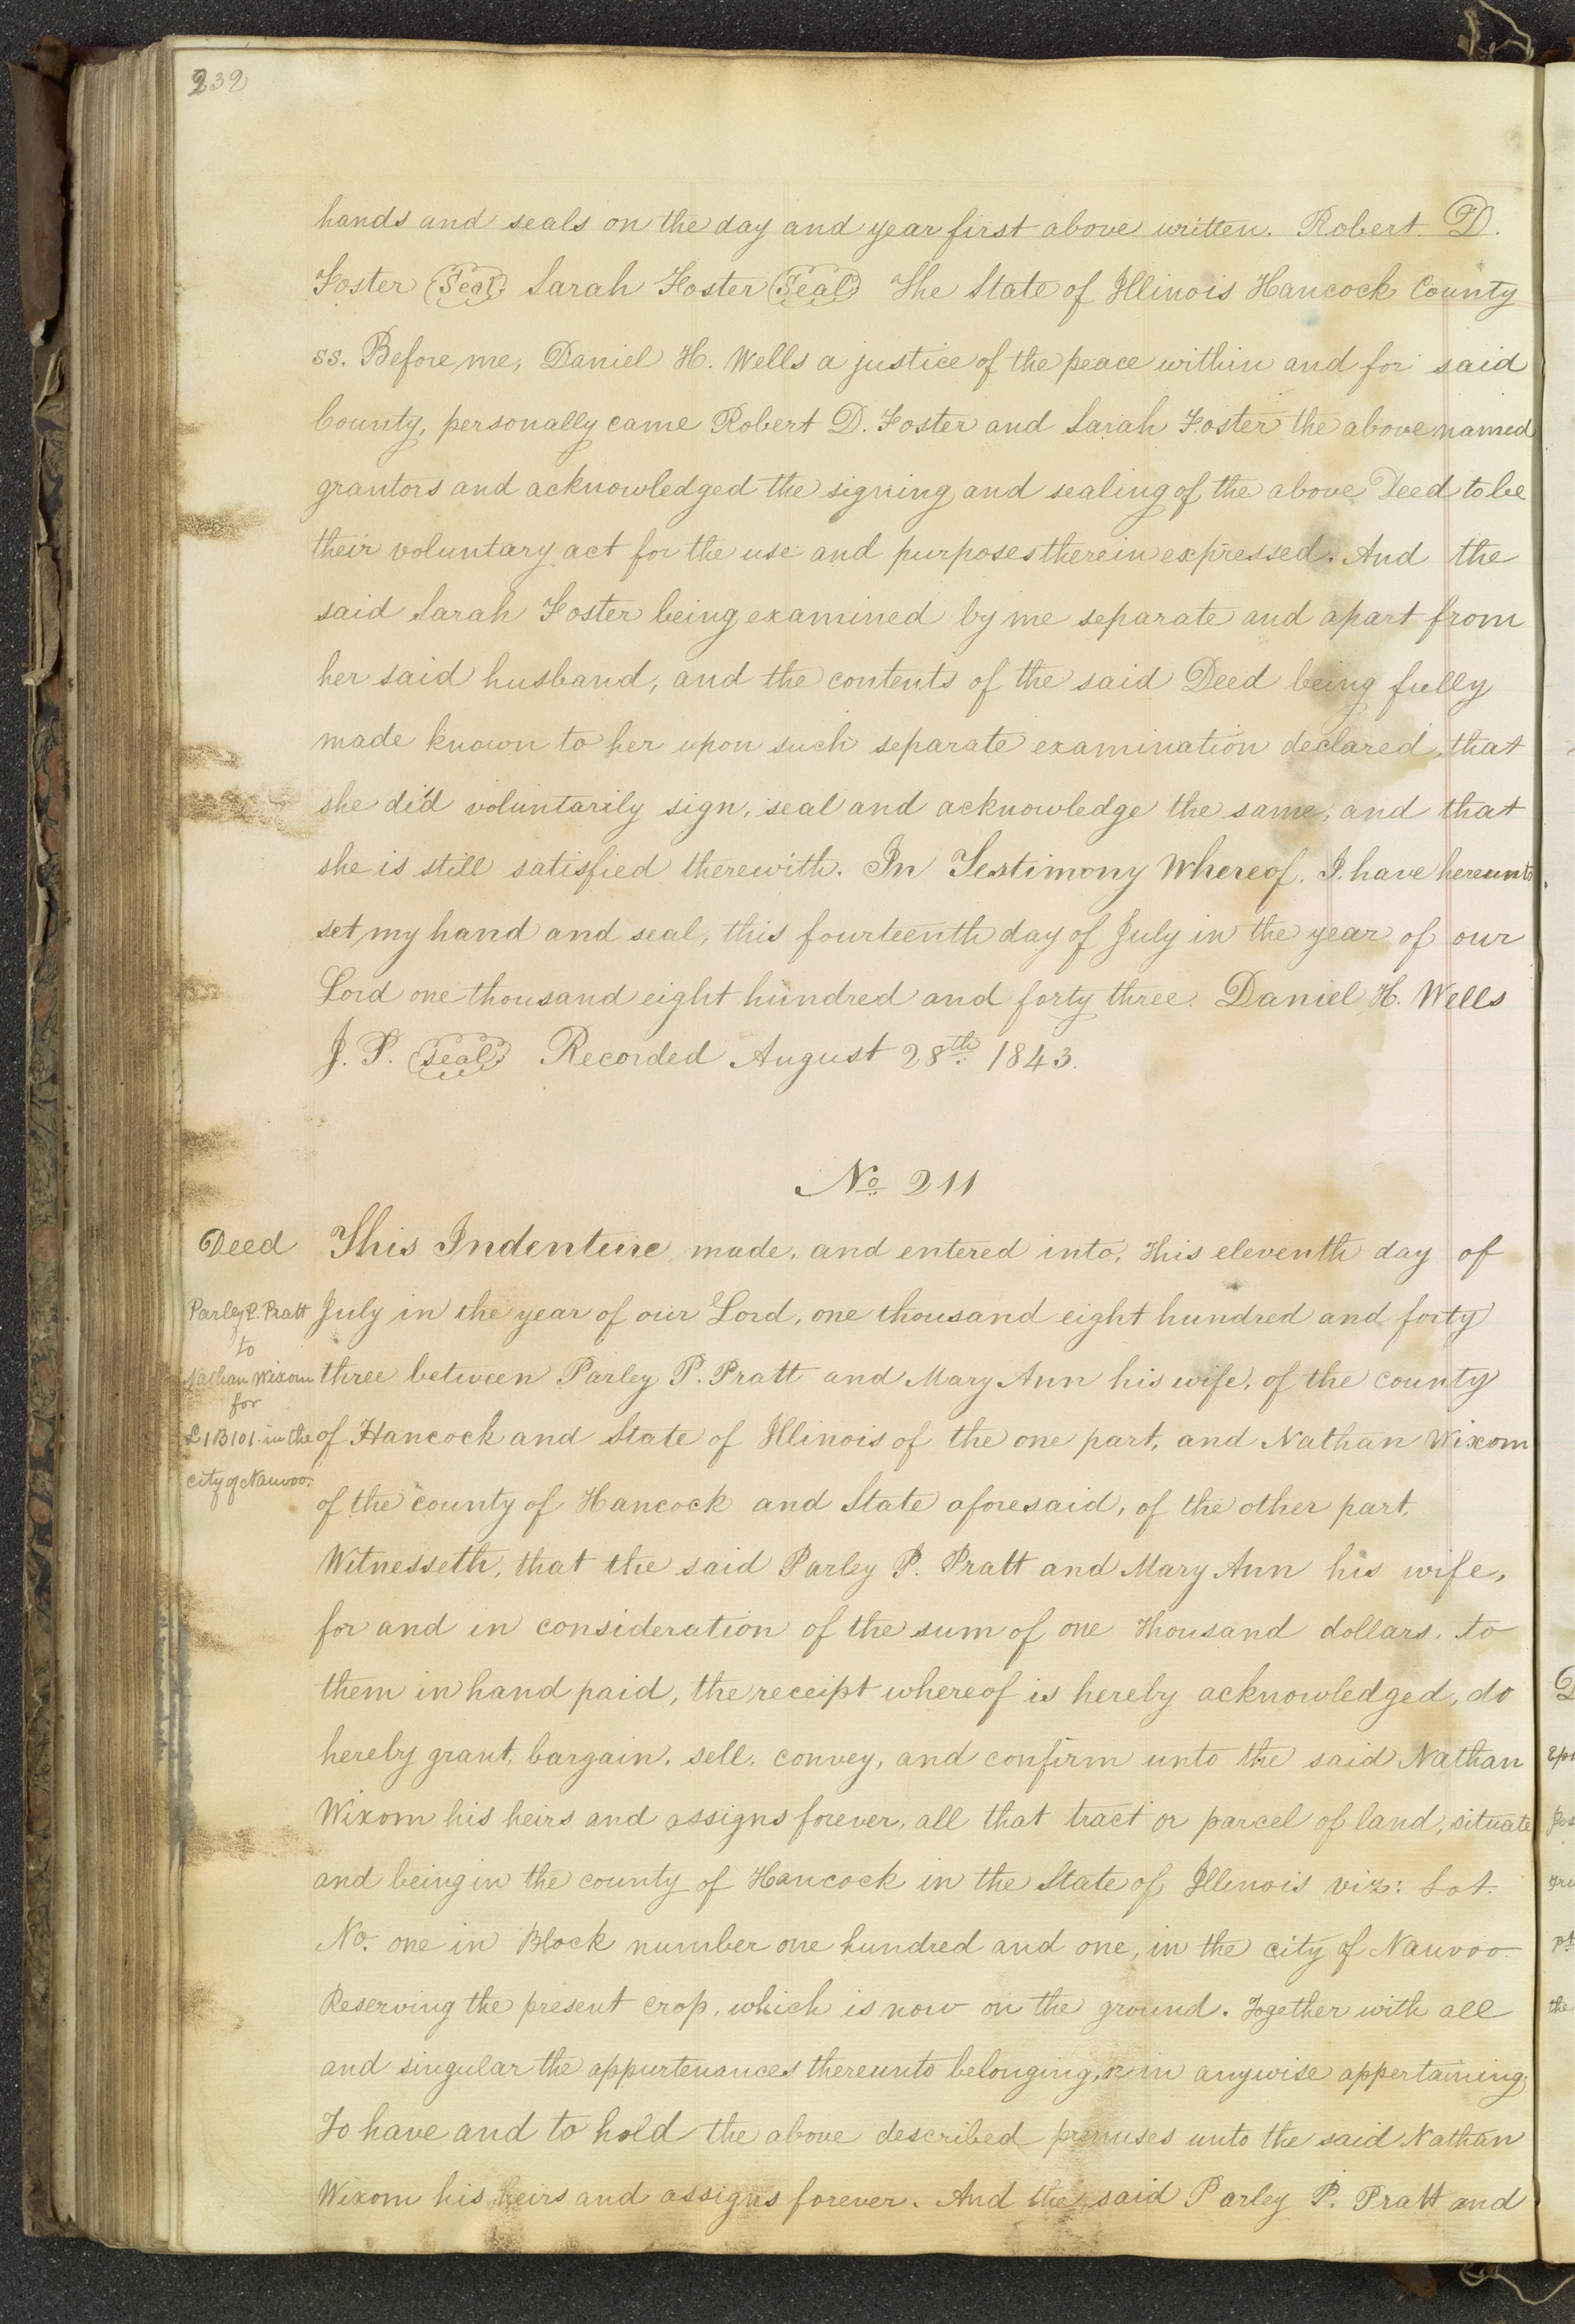 232
hands and seals on the day and year first above written. Robert D.
Foster (Seal) Sarah Foster (Seal) The State of Illinois Hancock County
ss. Before me, Daniel H. Wells a justice of the peace within and for said
County, personally came Robert D. Foster and Sarah Foster the above named
grantors and acknowledged the signing and sealing of the above Deed to be
their voluntary act for the use and purposes therein expressed. And the
said Sarah Foster being examined by me separate and apart from
her said husband, and the contents of the said Deed being fully
made known to her upon such separate examination declared, that
she did voluntarily sign, seal and acknowledge the same, and that
she is still satisfied therewith. In Testimony Whereof. I have hereunto
set my hand and seal, this fourteenth day of July in the year of our
Lord one thousand eight hundred and forty three. Daniel H. Wells
J. P. (Seal) Recorded August 28th 1843.
No 211
Deed
Parley P. Pratt
to
Nathan Wixom
for
L 1 B 101. in the
city of Nauvoo.
This Indenture made, and entered into, this eleventh day of
July in the year of our Lord, one thousand eight hundred and forty
three between Parley P. Pratt and Mary Ann his wife, of the county
of Hancock and State of Illinois of the one part, and Nathan Wixom
of the county of Hancock and State aforesaid, of the other part,
Witnesseth, that the said Parley P. Pratt and Mary Ann his wife,
for and in consideration of the sum of one thousand dollars, to
them in hand paid, the receipt whereof is hereby acknowledged, do
hereby grant, bargain, sell, convey, and confirm unto the said Nathan
Wixom his heirs and assigns forever, all that tract or parcel of land, situate
and being in the county of Hancock in the State of Illinois viz: Lot.
No. one in Block number one hundred and one, in the city of Nauvoo.
Reserving the present crop, which is now on the ground. Together with all
and singular the appurtenances thereunto belonging, or in anywise appertaining;
To have and to hold the above described premises unto the said Nathan
Wixom his heirs and assigns forever. And the said Parley P. Pratt and